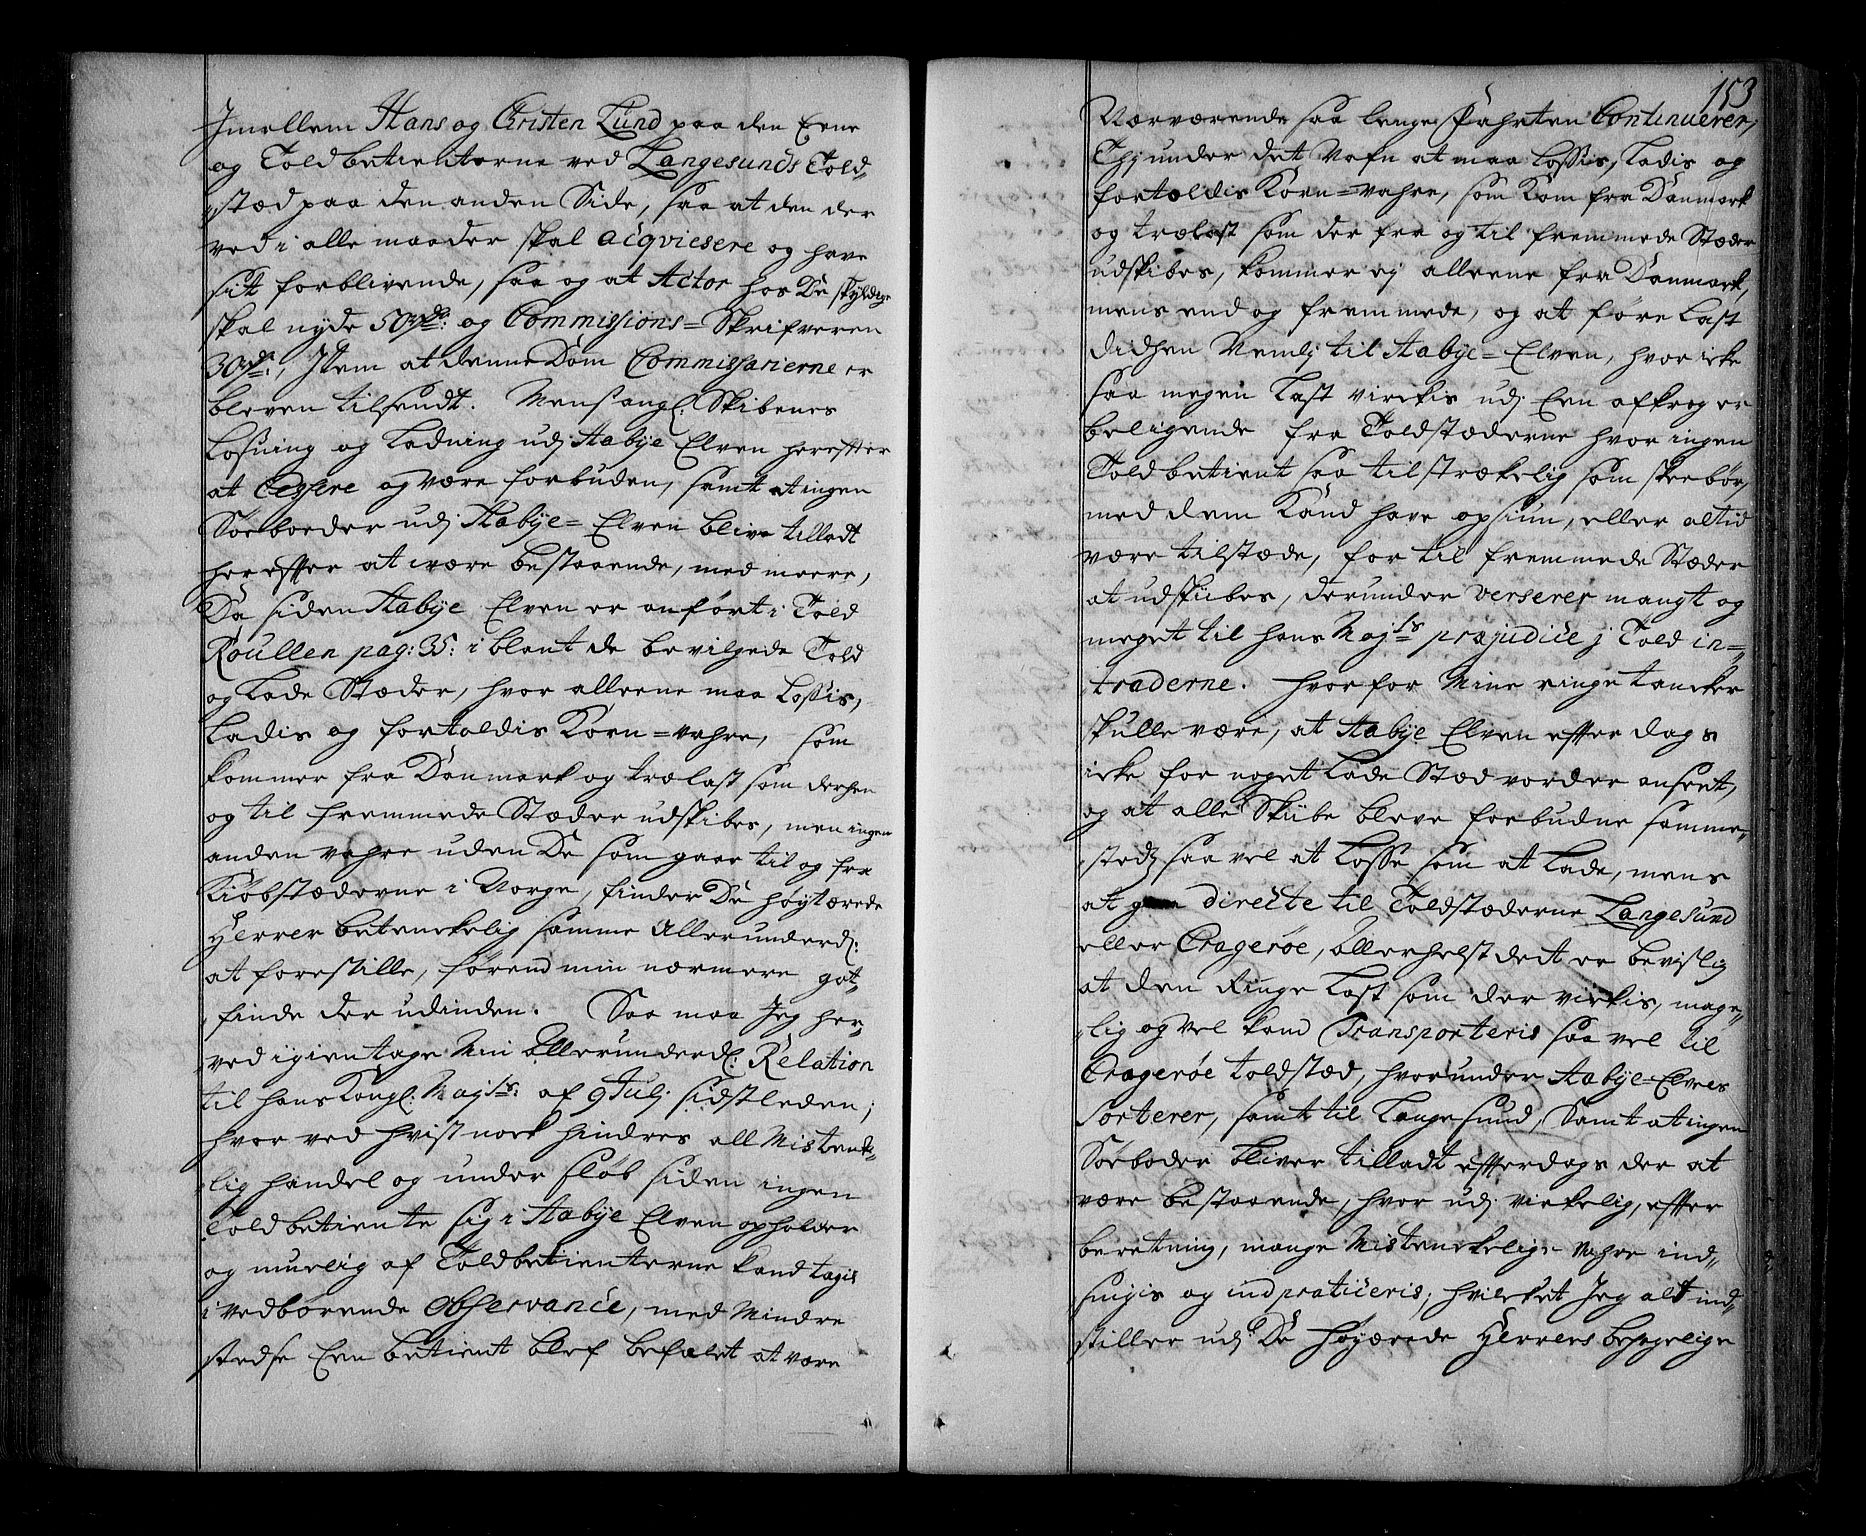 Jmellem Hans og Christen Lund paa den Eene
og Toldbetienterne ved Langesunds Told-
stæd paa den anden Side, saa at den der
ved i alle maader skal acqviesere og have
sit forblivende, saa og at Actor hos De skyldige
skal nyde 50 rdr: og Commissions=Skrifveren
30 rdr:, Jtem at denne Dom Commissarierne er
bleven tilsendt. Mens angl: Skibenes
Losning og Ladning udj Aabye Elven herefter
at Cessere og være forbuden, samt at ingen
Søeboeder udj Aabye=Elven blive tilladt
her efter at være bestaaende, med meere,
Da siden Aabye Elven er anført i Told
Roullen pag: 35: iblant de bevilgede Told
og Lade Stæder, hvor alleene maa Lossis,
Ladis og fortoldis Korn=vahre, som
kommer fra Danmark og trælast som derhen
og til fremmede Stæder udskibes, men ingen
anden vahre uden De som gaar til og fra
Kiøbstæderne i Norge, finder De høytærede
Herrer betenckelig samme Allerunderd:
at forestille, førend min nærmere got-
finde der udinden. Saa maa Jeg her-
ved igientage Min Allerunderd: Relation
til hans Kongl: Majts: af 9 Julj sidstleden;
hvor ved hvist nock hindres all Mistenk-
lig handel og under sløb siden ingen
Toldbetiente sig i Aabye Elven opholder
og muelig af Toldbetienterne kand tagis
i vedbørende Observance, med Mindre
stedse Een betient blef befalet at være
153
Nærværende saa lenge Fahrten Continuerer,
Thj under det Nafn at maa Lossis, Ladis og
fortoldis Korn=vahre, som kom fra Danmark
og trælast som der fra og til fremmede Stæder
udskibes, kommer ej alleene fra Danmark,
mens end og fremmede, og at føre Last
didhen Nemlj til Aabye=Elven, hvor icke
saa megen Last virckis udj Een afkrog er
beligende fra Toldstæderne hvor ingen
Toldbetient saa tilstrækelig som skee bør,
med dem Kand have opsiun, eller altid
være tilstæde, for til fremmede Stæder
at udskibes, derunder verserer mangt og
meget til hans Majts præjudice j Told in=
traderne. Hvorfor Mine ringe tancker
skulle være, at Aabye Elven efter dags
icke for noget Lade Stæd vorder anseet,
og at alle Skibe bleve forbudne samme-
stedz saa vel at Losse som at Lade, mens
at gaa directe til Toldstæderne Langesund
eller Cragerøe, allerhelst det er bevislig
at den Ringe Last som der virkis, mage-
lig og vel kand Transporteris saa vel til
Cragerøe toldstæd, hvorunder Aabye=Elvres
Sorterer, samt til Langesund, Samt at ingen
Søeboder bliver tilladt efterdags der at
være bestaaende, hvor udj virkelig, efter
beretning, mange Mistenckelige Vahre ind-
sniges og indpraticeris; hvilcket Jeg alt ind-
stiller udj De høyærede Herrers behagelige